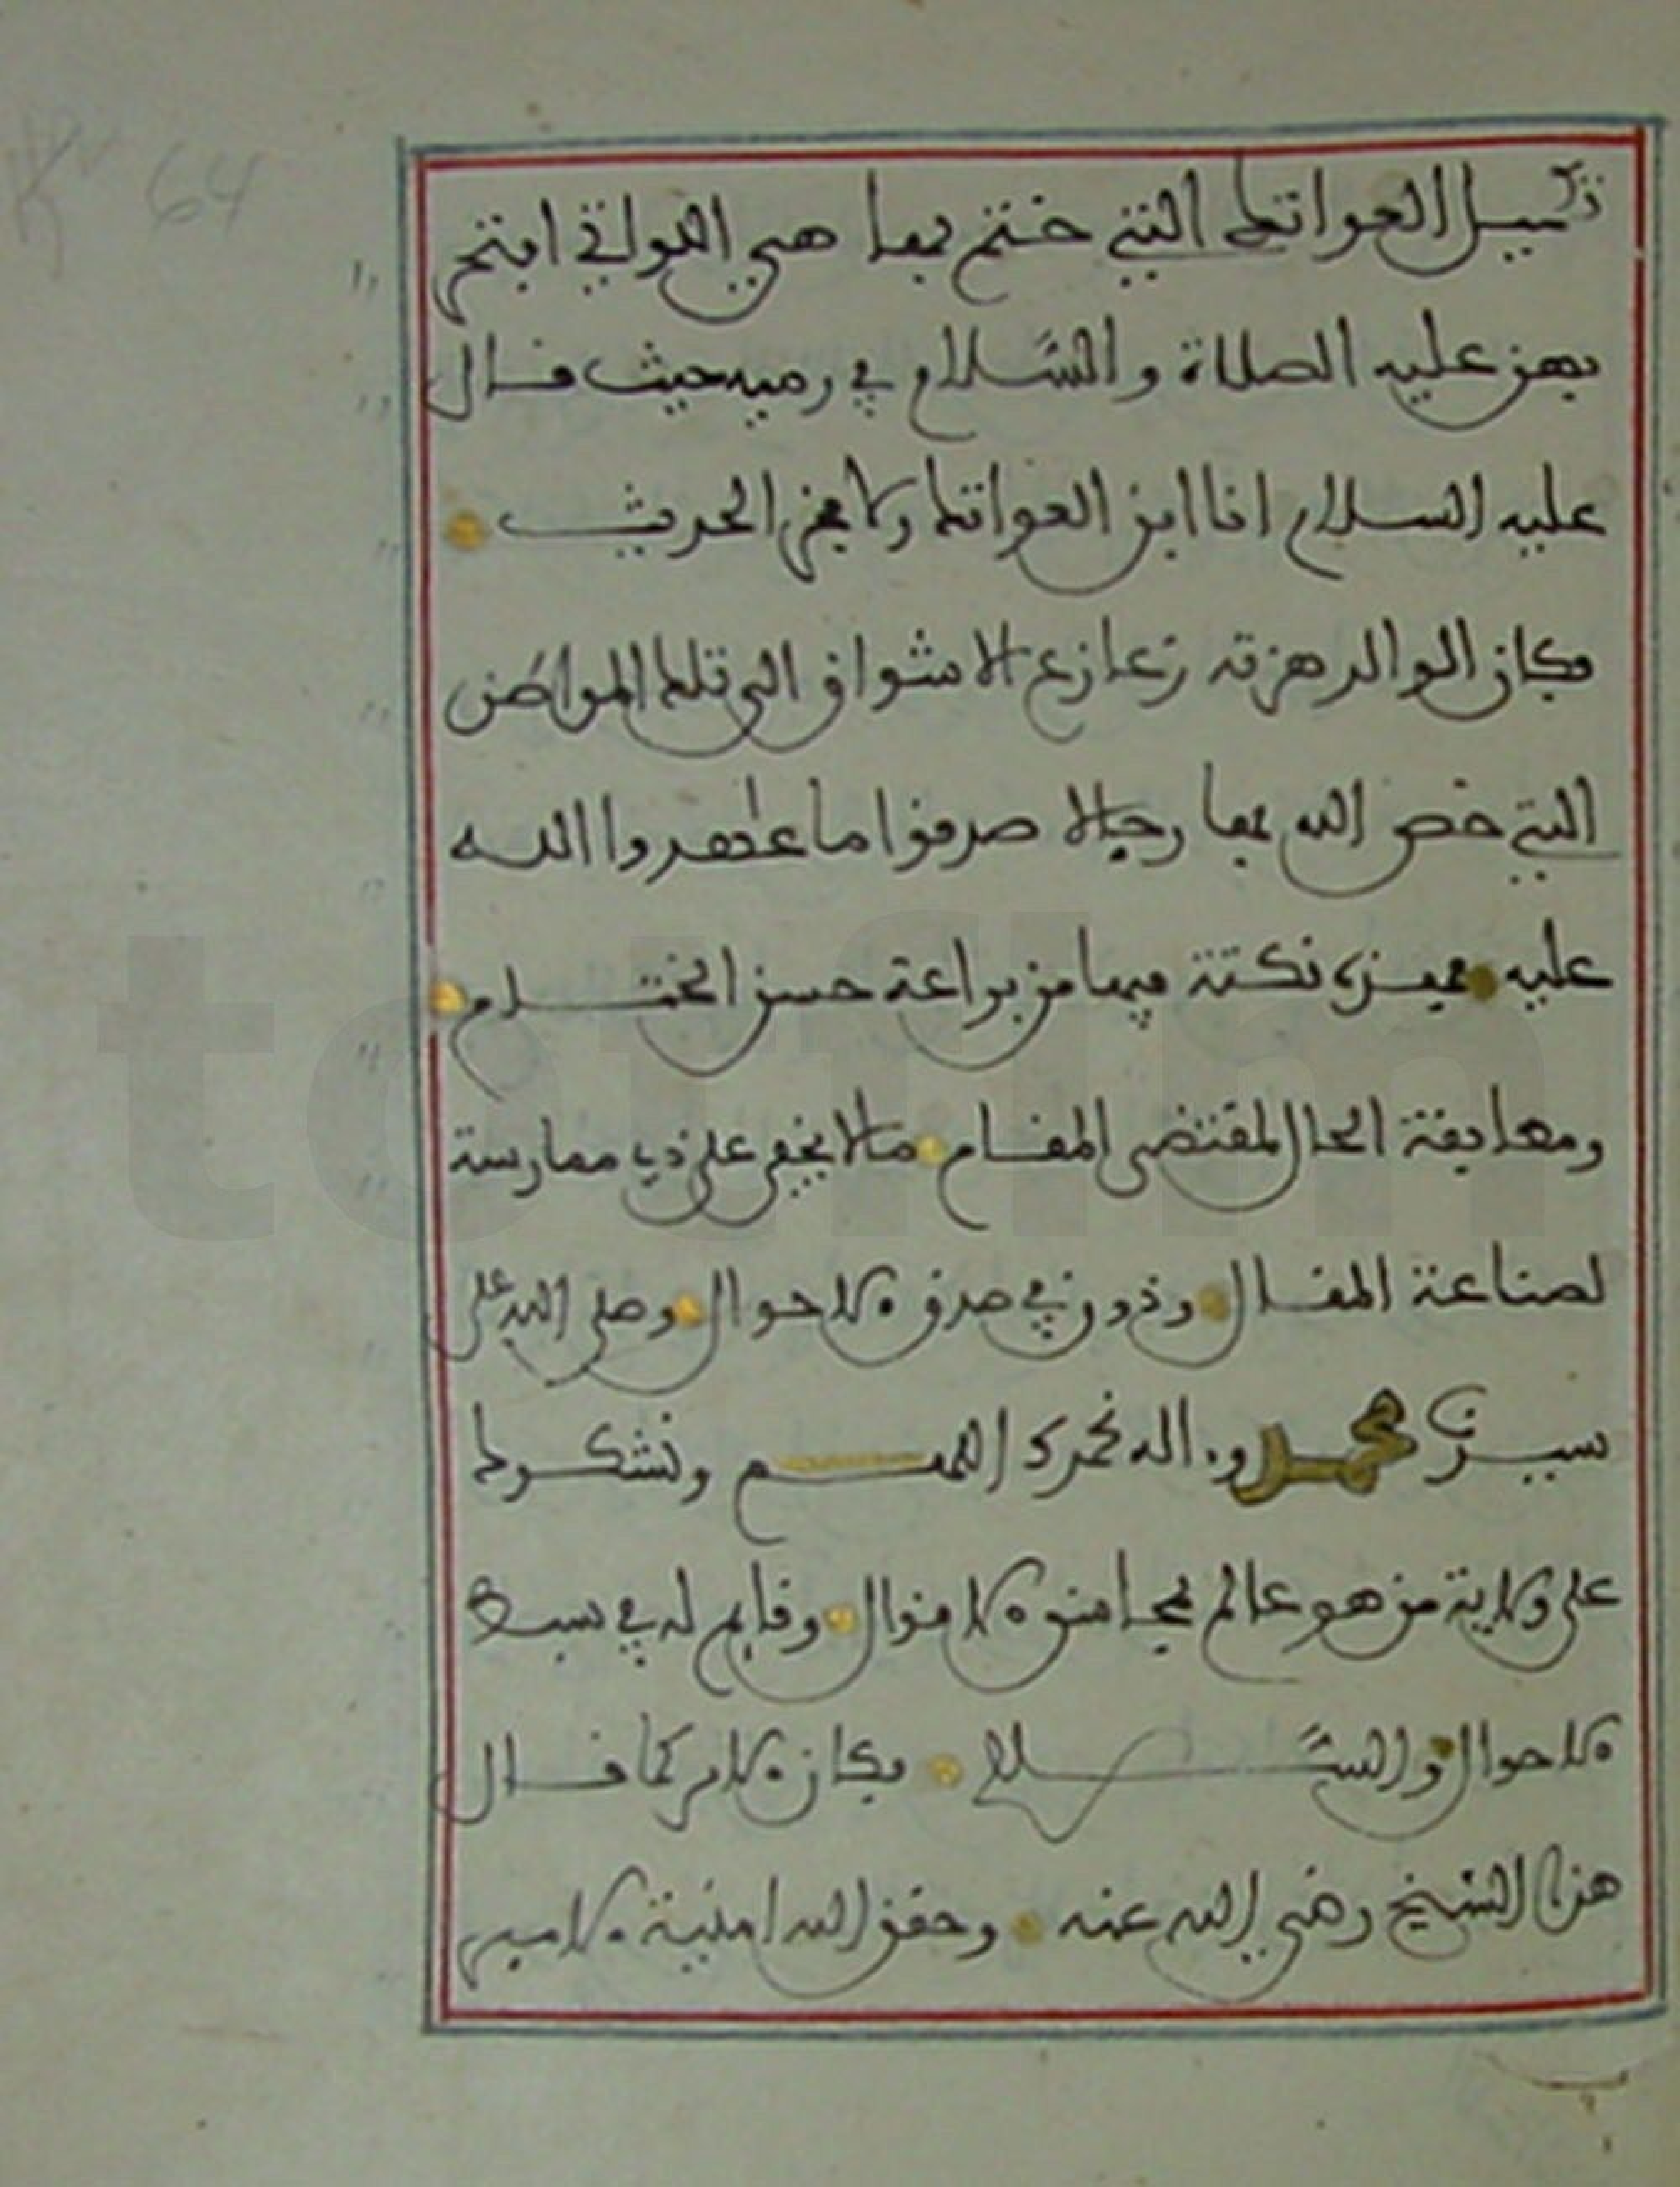 K 64
سبيل العواتك التي ختم بها هي اللواتي افتخر
بهن عليه الصلاة والسلام في رميه حيث قال
عليه السلام انا ابن العواتك ولا فخر الحديث
فكان الوالد هزته زعازع الاشواق الى تلك المواطن
التي خص الله بها رجالا صدقوا ما عاهدوا الله
عليه فهذه نكتة فيها من براعة حسن الختام
ومطابقة الحال لمقتضى المقام ما لا يخفى على ذي ممارسة
لصناعة المقال وذوق في صدق الاحوال وصلى الله على
سيدنا محمد وءاله نحمدك اللهم ونشكرك
على ولاية من هو عالم الاقوال وقايم له في
الاحوال والسلام فكان الامر كما قال
هذا الشيخ رضي الله عنه وحقق الله امنية الامير